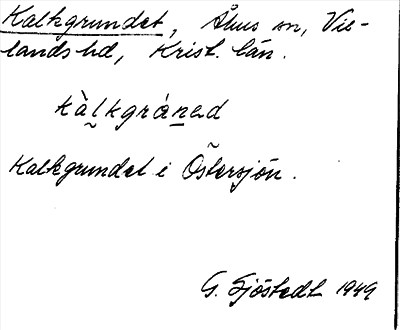 Kalkgrundet, Åhus sn, Vil-
lands hd, Krist. län.
kàl̰kgrán̲ad
Kalkgrundet i Östersjön.
G. Sjöstedt 1949